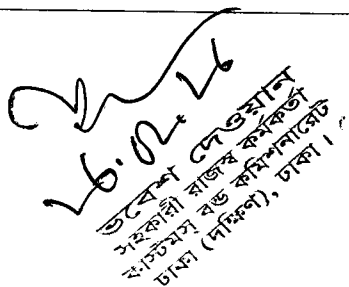 ২৬.০২.২৬
ভবেশ দেওয়ান
সহকারী রাজস্ব কর্মকর্তা
কাস্টমস্ বন্ড কমিশনারেট
ঢাকা (দক্ষিণ), ঢাকা।